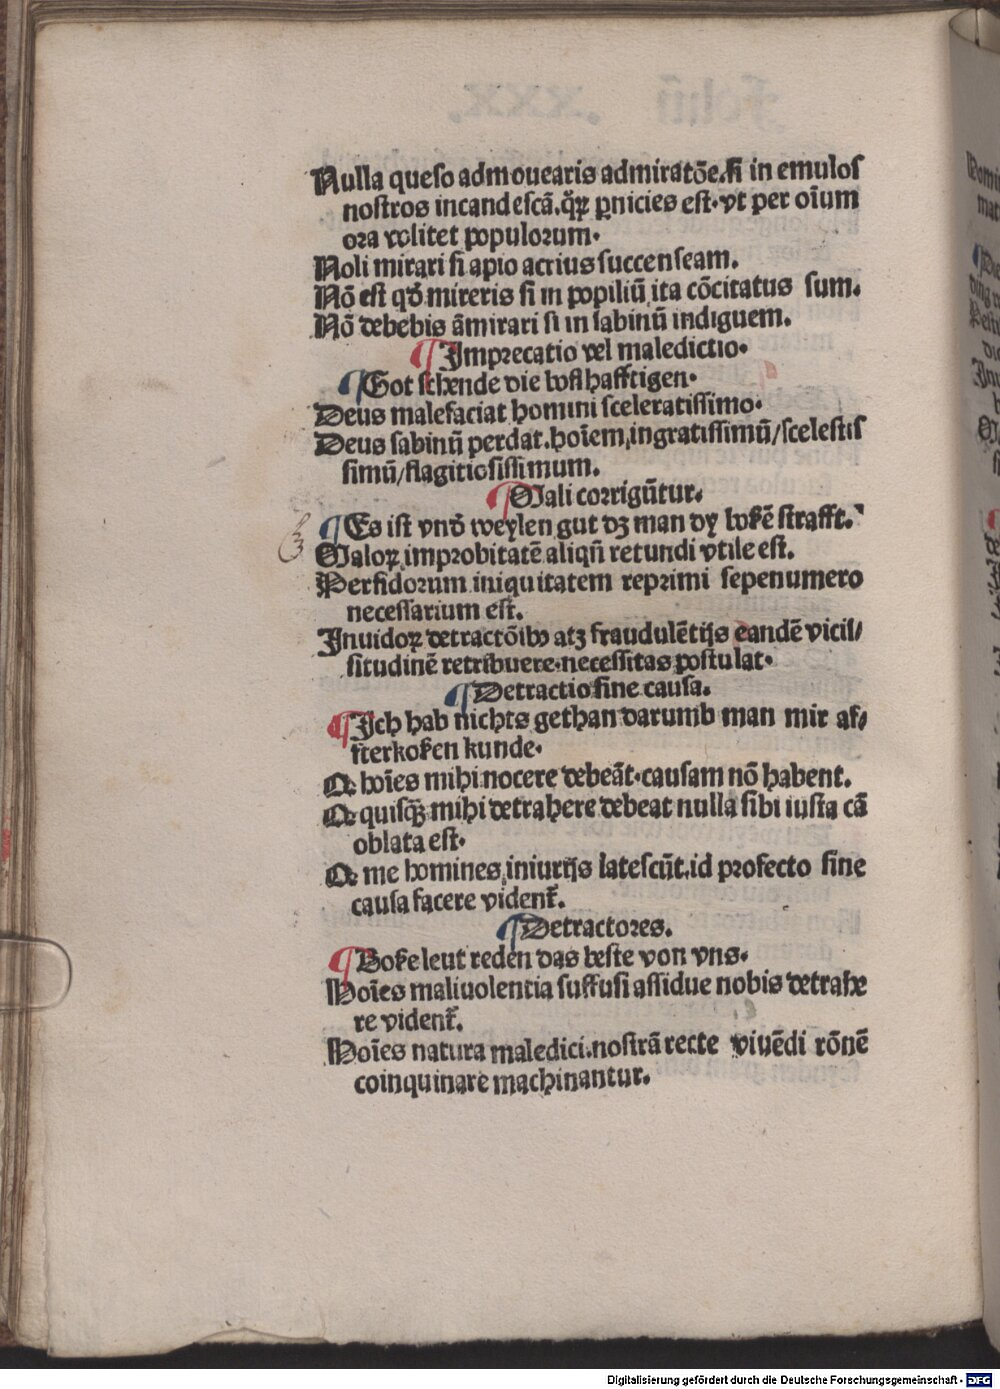 Nulla queſo admouearis admiratōe.ſi in emuloſ
noſtros incandeſcā.qꝫ ꝑnicies eſt.vt per oīum
ora volitet populorum.
Noli mirari ſi apio acrius ſuccenſeam.
Nō eſt qđ mireris ſi in popiliū ita cōcitatus ſum.
Nō debebis āmirari ſi in ſabinū indiguem.
¶Imprecatio vel maledictio.
¶Got ſchende die boſhafftigen.
Deus malefaciat homini ſceleratiſſimo.
Deus ſabinū perdat.hoīem ingratiſſimū/ſceleſtiſ
ſimū/flagitioſiſſimum.
¶Mali corrigūtur.
¶Es iſt vnđ weylen gut dꝫ man dy boſzē ſtrafft.
Maloꝝ improbitatē aliqn̄ retundi vtile eſt.
Perfidorum iniquitatem reprimi ſepenumero
neceſſarium eſt.
Inuidoꝝ detractōibꝰ atꝫ fraudulētijs eandē viciſ/
ſitudinē retribuere.neceſſitas poſtulat.
¶Detractio ſine cauſa.
¶Ich hab nichts gethan darumb man mir af/
fterkoſen kunde.
Qꝛ hoīes mihi nocere debeāt.cauſam nō habent.
Qꝛ quiſqꝫ mihi detrahere debeat nulla ſibi iuſta cā
oblata eſt.
Qꝛ me homines iniurijs lateſcūt.id profecto ſine
cauſa facere videnť.
¶Detractores.
¶Boſzeleut reden das beſte von vns.
Hoīes maliuolentia ſuffuſi aſſidue nobis detrahe
re videnť.
Hoīes natura maledici.noſtrā recte viuēdi rōnē
coinquinare machinantur.
Digitalisierung gefördert durch die Deutsche Forschungsgemeinschaft - DFG